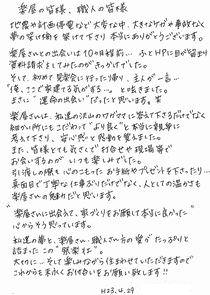 楽居の皆様、職人の皆様
地震や計画停電など大変な中、大きなケガや事故なく
夢の架け橋を架けて下さり本当にありがとうございます。
楽居さんとの出会いは10ヶ月程前…ふとHPに目が留まり
資料請求をしてみたのがきっかけでした。
そして、初めて見学会に行った帰り、主人が一言…
“俺、ここで家建てる気がする…。”と呟きました。
まさに“運命の出会い”だったと思います。笑
楽居さんは、知美の沢山のワガママに答えて下さるだけでなく
細かい所にもこだわって“より良く”と本当に親身に
考えて下さり、安心感と感動を覚えました。
また、皆様とても気さくで打合せや現場等で
お会いするのがいつも楽しみでした。
引き渡しの際も心のこもったお手紙やプレゼントを下さったり…
真面目で丁寧な仕事ぶりだけでなく、人としての温かさも
楽居さんの魅力だと思います。
“楽居さんに出会えて、家づくりをお願いして本当に良かった”
心からそう思っています。
知美の夢と、楽居さん・職人さん方の愛がたっぷりと
詰まったこの“
大切に…そして楽しみながら住まわせていただきますので
これからも末永くお付合いをお願い致します!!
H23.4.29